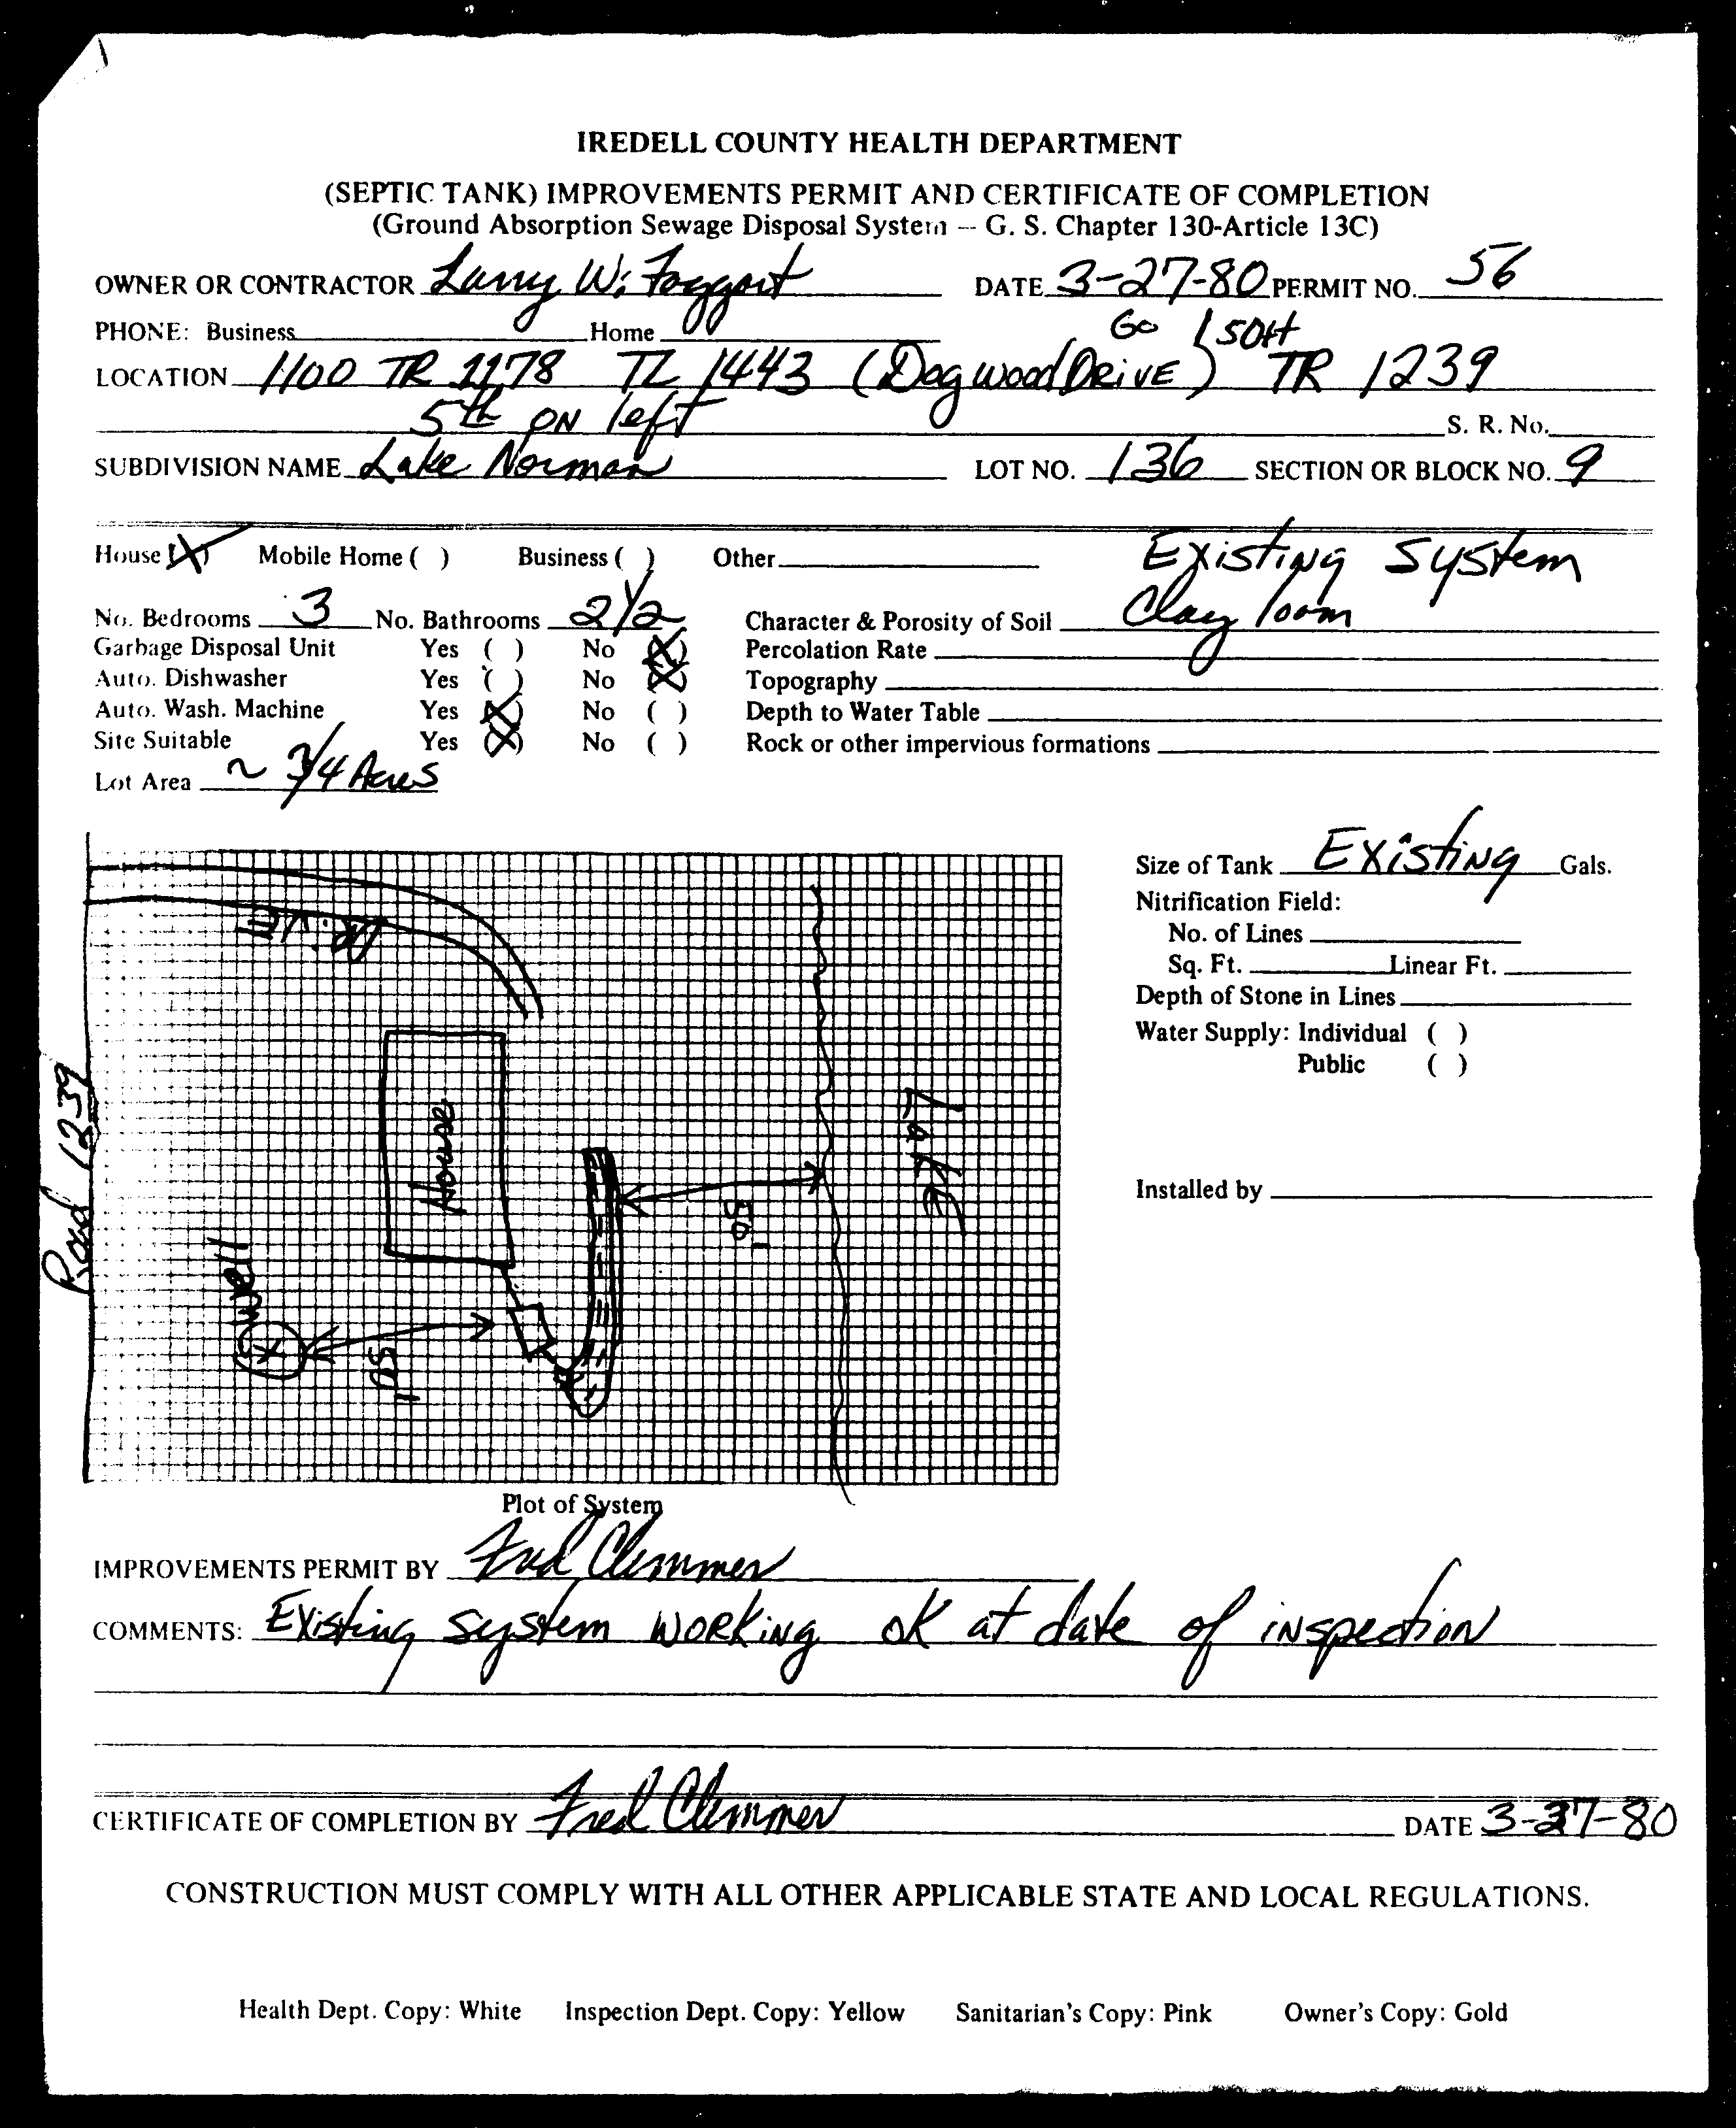 IREDELL COUNTY HEALTH DEPARTMENT
(SEPTIC TANK) IMPROVEMENTS PERMIT AND CERTIFICATE OF COMPLETION
(Ground Absorption Sewage Disposal System -- G. S. Chapter 130-Article 13C)
OWNER OR CONTRACTOR Larry W. Foggart DATE 3-27-80 PERMIT NO. 56
PHONE: Business Home Go 150ft
LOCATION 1100 TR 1178 TL 1443 (Dogwood DRIVE) TR 1239
5th ON left S. R. No.
SUBDIVISION NAME Lake Norman LOT NO. 136 SECTION OR BLOCK NO. 9
House (X) Mobile Home ( ) Business ( ) Other Existing System
No. Bedrooms 3 No. Bathrooms 2 1/2 Character & Porosity of Soil Clay loom
Garbage Disposal Unit Yes ( ) No (X) Percolation Rate
Auto. Dishwasher Yes ( ) No (X) Topography
Auto. Wash. Machine Yes (X) No ( ) Depth to Water Table
Site Suitable Yes (X) No ( ) Rock or other impervious formations
Lot Area ~ 3/4 Acres
Size of Tank Existing Gals.
Nitrification Field:
No. of Lines
Sq. Ft. Linear Ft.
Depth of Stone in Lines
Water Supply: Individual ( )
Public ( )
Installed by
DRiVE
Road 1239
House
LaKE
50'
well
50'
Plot of System
IMPROVEMENTS PERMIT BY Fred Clemmer
COMMENTS: Existing system WORKiNg OK at date of iNspectioN
CERTIFICATE OF COMPLETION BY Fred Clemmer DATE 3-27-80
CONSTRUCTION MUST COMPLY WITH ALL OTHER APPLICABLE STATE AND LOCAL REGULATIONS.
Health Dept. Copy: White Inspection Dept. Copy: Yellow Sanitarian's Copy: Pink Owner's Copy: Gold